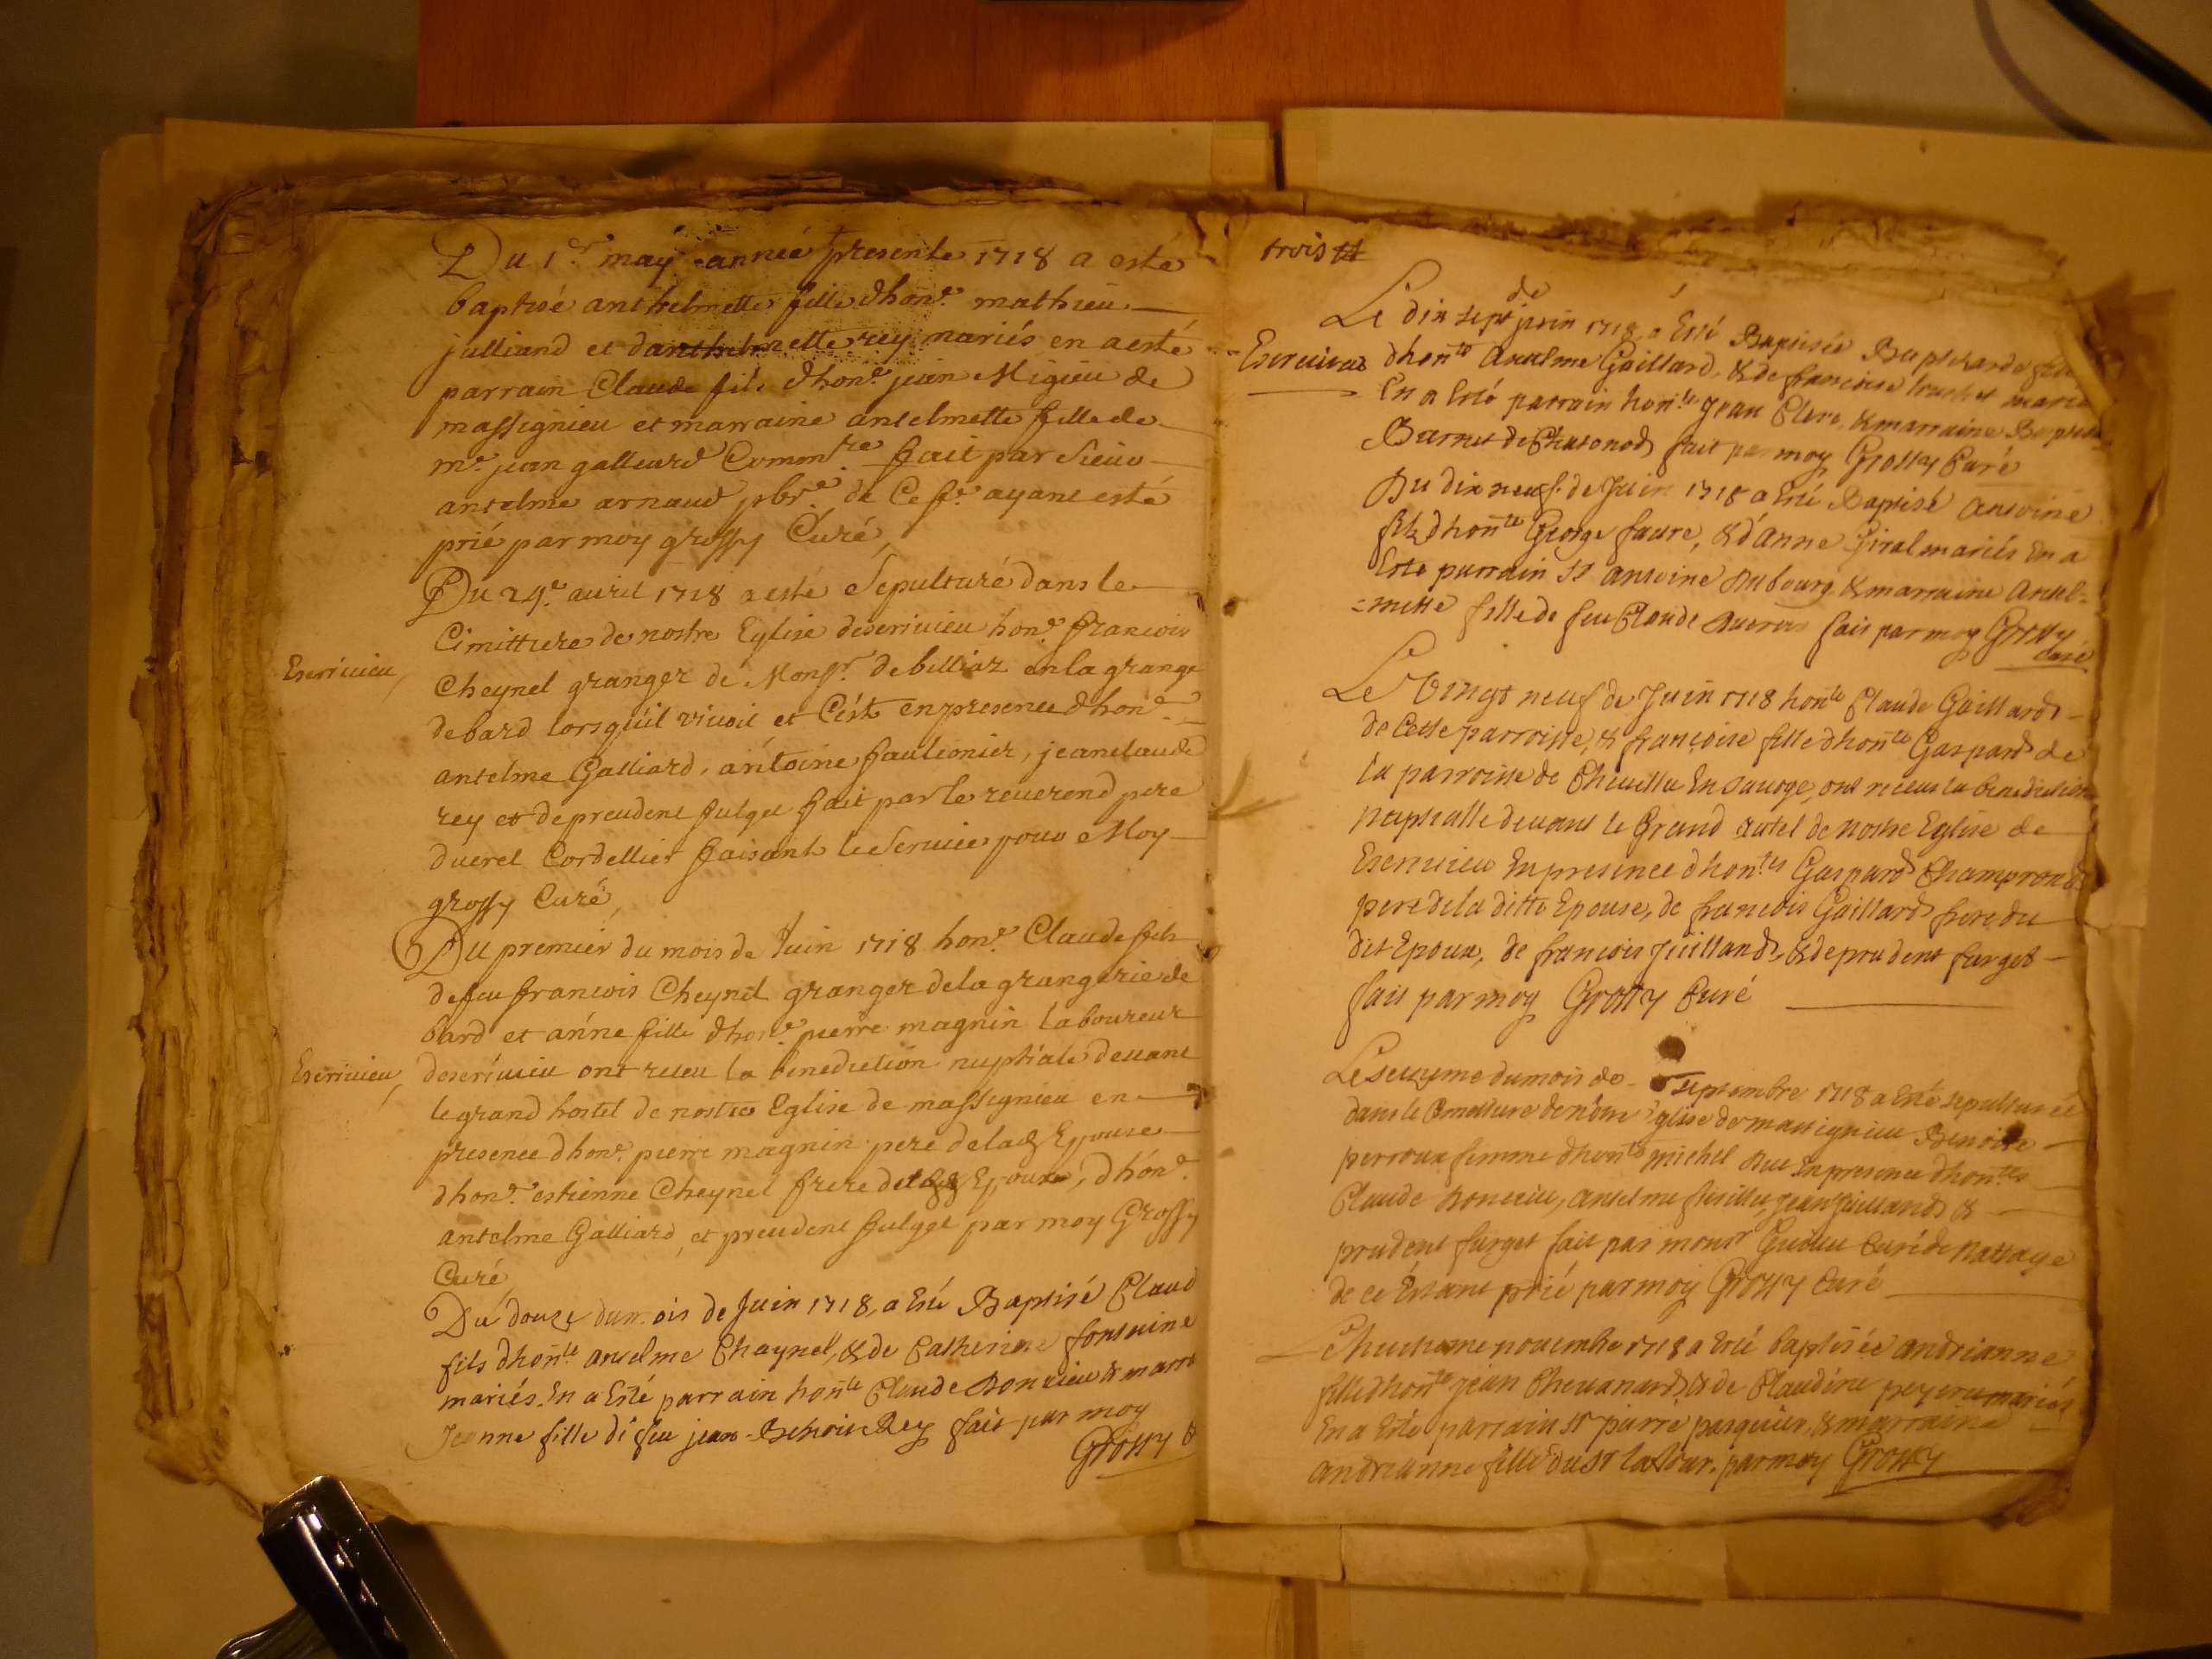 Du 1er may année presente 1718 a esté
baptisé anthelmette fille dhon.e mathieu
julliand et danthelmette rey mariés en a esté
parrain Claude fils dhon.e jean Migieu de
massignieu et marraine antelmette fille de
m.e jean galliard fait par Sieur
antelme arnaud pbr.e de Ce ayant esté
prié par moy grossy Curé,
Du 24.e auril 1718 a esté Sepulturé dans le
Cimittiere de nostre Eglise deseriuieu hon.e francois
Eseriuieu,
Cheynel granger de Monsr. de billiaz en la grange
de bard lorsquil viuoit et Cést en presence dhon.e
antelme Galliard, antoine faulionier, jeanclaude
rey et de preudent fulget fait par le reuerend pere
duerel Cordellier faisant le Seruice pour Moy
grossy Curé,
Du premier du mois de Juin 1718 hon.e Claude fils
de feu francois Cheynel granger de la grangerie de
bard et anne fille dhon.e pierre magnin laboureur
Eseriuieu,
deseriuieu ont receu la benediction nuptiale deuant
le grand hostel de nostre Eglise de massignieu en
presence dhon.e pierre magnin pere de lad Epouse
dhon.e estienne Cheynel frere Epoux, dhon.e
antelme Galliard, et preudent fulget par moy Grossy
Curé
Du douze du mois de Juin 1718, a Esté Baptisé Claud
fils dhon.te anselme Chaynel, & de Catherine fontaine
mariés. En a Esté parrain hon.te Claude Bonnieu & marr
Jeanne fille de feu jean Benoit Rey fait par moy
Grossy
trois
Le dix sept de juin 1718, a Esté Baptisée
Eseriuieux
dhon.te Anselme Gaillard, & de francoise
En a Esté parrain hon.te Jean Clerc, & marraine
Burnet de Chasonod fait par moy Grossy Curé
Du dix neuf de Juin 1718 a Esté Baptisé Antoine
fils dhon.te George faure, & d'Anne Giral mariés En a
Esté parrain Sr Antoine Dubourg & marraine Antel-
=mette fille de feu Claude fait par moy Grossy
Curé
Le Vingt neuf de Juin 1718 hon.te Claude Gaillard
de Cette parroisse, & françoise fille dhon.te Gaspard de
la parroisse de Cheuillu En sauoye, ont receu la benediction
nuptialle deuant le Grand autel de nostre Eglise de
Eseriuieu En presence dhon.tes Gaspard Champrond
pere de la ditte Epouse, de francois Gaillard frere du
dit Epoux, de francois Juilland, & de prudent furget
fait par moy Grossy Curé
Le du mois de septembre 1718 a Esté sepulturée
dans le de nôtre Eglise de massignieu Benoite
perroux femme dhon.te michel En presence dhon.tes
Claude Bonnieu, Anselme Jean Juilland &
prudent furget fait par monsr Curé de Nattage
de ce Estant prié par moy Grossy Curé
nouembre 1718 a Esté baptisée Andrianne
fille dhon.te jean Cheuanard, & de Claudine mariés
En a Esté parrain Sr pierre pasquier, & marraine
Andrianne fille du Sr latour. par moy Grossy